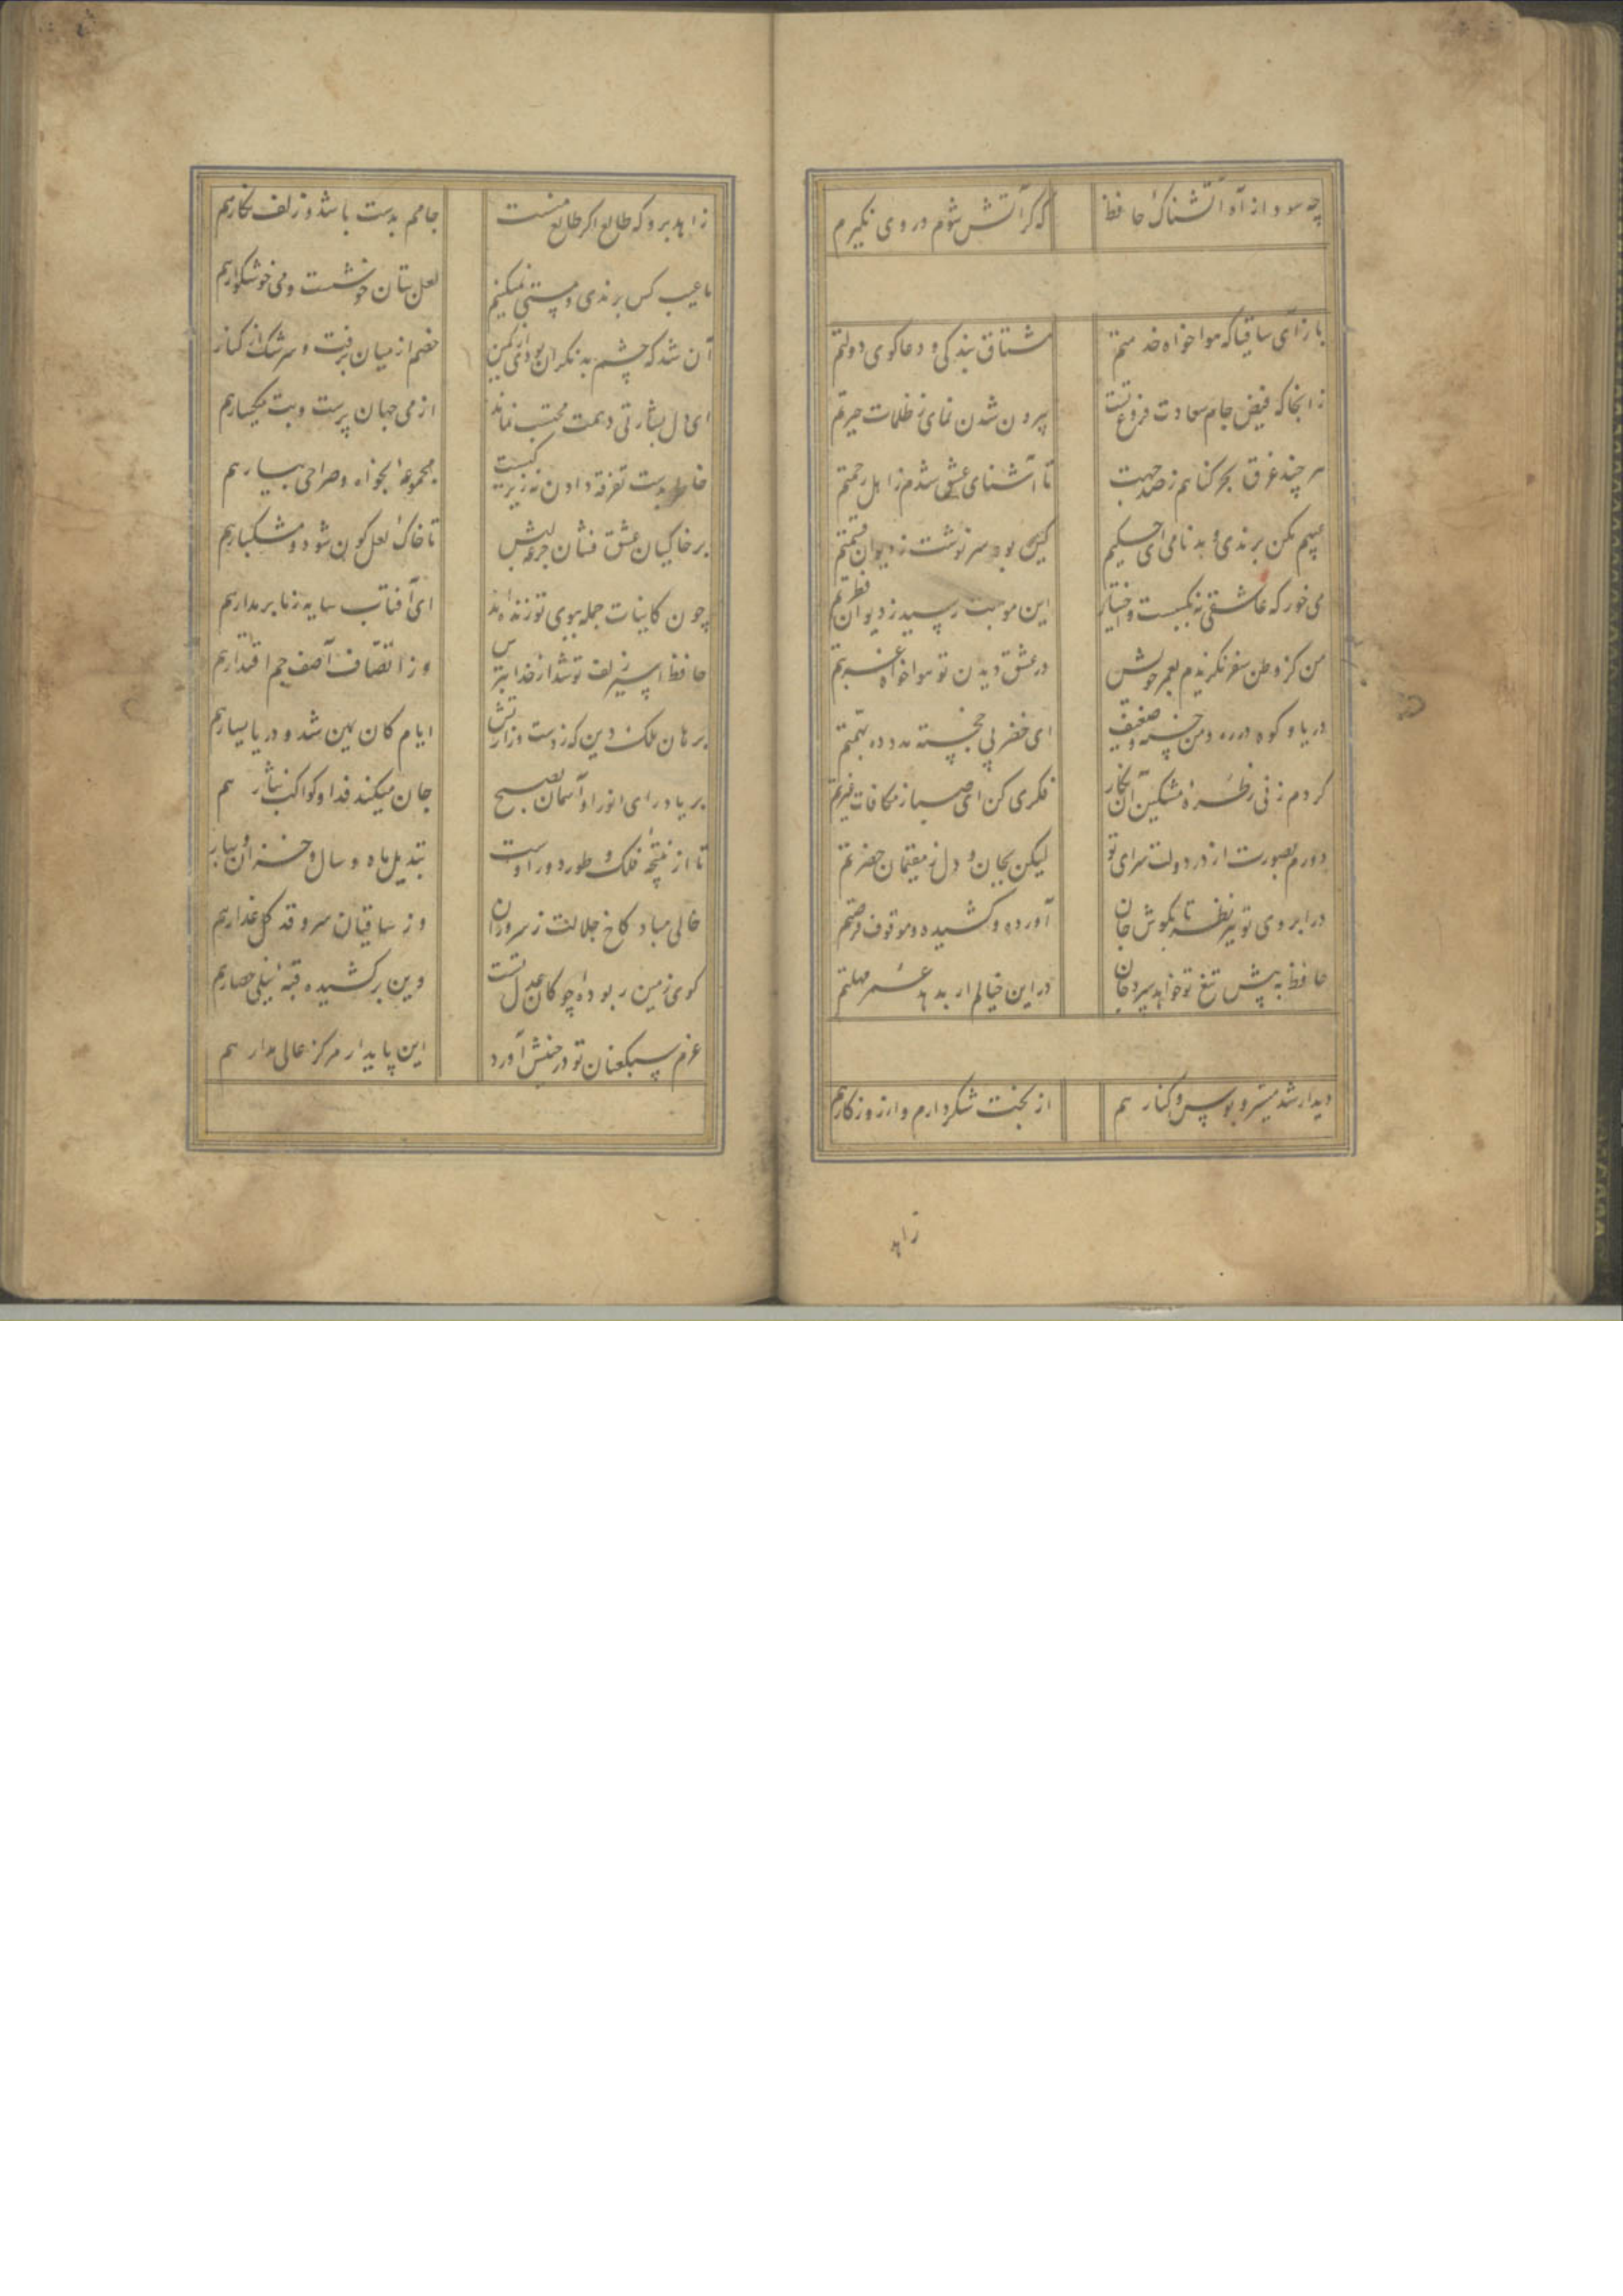 چه سود از آه آتشناک حافظ که کر آتش شوم در وی نکیرم
باز آی ساقیا که هواخواه خدمتم مشتاق بندکی و دعاکوی دولتم
زانجا که فیض جام سعادت فروغ تست بیرون شدن نمای ز ظلمات حیرتم
هر چند غرق بحر کناهم ز صد جهت تا آشنای عشق شدم ز اهل رحمتم
عیبم مکن برندی و بدنامی ای حکیم کین بود سرنوشت ز دیوان قسمتم
می خور که عاشقی نه بکسبست و اختیار این موهبت رسید ز دیوان فطرتم
من کز وطن سفر نکزیدم بعمر خویش در عشق دیدن تو هواخواه غربتم
دریا و کوه در ره و من خسته و ضعیف ای خضر پی خجسته مدد ده بهمتم
کردم زنی بطره مشکین آن نکار فکری کن ای صبا ز مکافات غیرتم
دورم بصورت از در دولت سرای تو لیکن بجان و دل ز مقیمان حضرتم
در ابروی تو تیر نظر تا بکوش جان آورده و کشیده و موقوف فرصتم
حافظ به پیش تیغ تو خواهد سپرد جان در این خیالم ار بدهد عمر مهلتم
دیدار شد میسر و بوس و کنار هم از بخت شکر دارم و از روزکار هم
زاهد
زاهد برو که طالع اکر طالع منست جامم بدست باشد و زلف نکار هم
ما عیب کس برندی و مستی نمیکنیم لعل بتان خوشست و می خوشکوار هم
آن شد که چشم بد نکران بودی از کمین خصم از میان برفت و سرشک از کنار
ای دل بشارتی دهمت محتسب نماند از می جهان پرست و بت میکسار هم
خاطر بدست تفرقه دادن نه زیرکیست مجموعه بخواه و صراحی بیار هم
بر خاکیان عشق فشان جرعه لبش تا خاک لعل کون شود و مشکبار هم
چون کاینات جمله ببوی تو زنده اند ای آفتاب سایه ز ما بر مدار هم
حافظ اسیر زلف تو شد از خدا بترس وز انتصاف آصف جم اقتدار هم
برهان ملک و دین که ز دست وزارتش ایام کان یمین شد و دریا یسار هم
بر یاد رای انور او آسمان بصبح جان میکند فدا و کواکب نثار هم
تا از نتیجه فلک و طور دور اوست تبدیل ماه و سال و خزان و بهار
خالی مباد کاخ جلالت ز سروران وز ساقیان سرو قد کل عذار هم
کوی زمین ربوده چوکان عدل تست وین برکشیده قبه نیلی حصار هم
عزم سبکعنان تو در جنبش آورد این پایدار مرکز عالی مدار هم